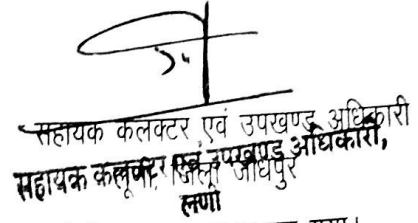 सहायक कलक्टर एवं उपखण्ड अधिकारी
सहायक कलक्टर एवं उपखण्ड अधिकारी,
लूणी, जिला जोधपुर
लूणी